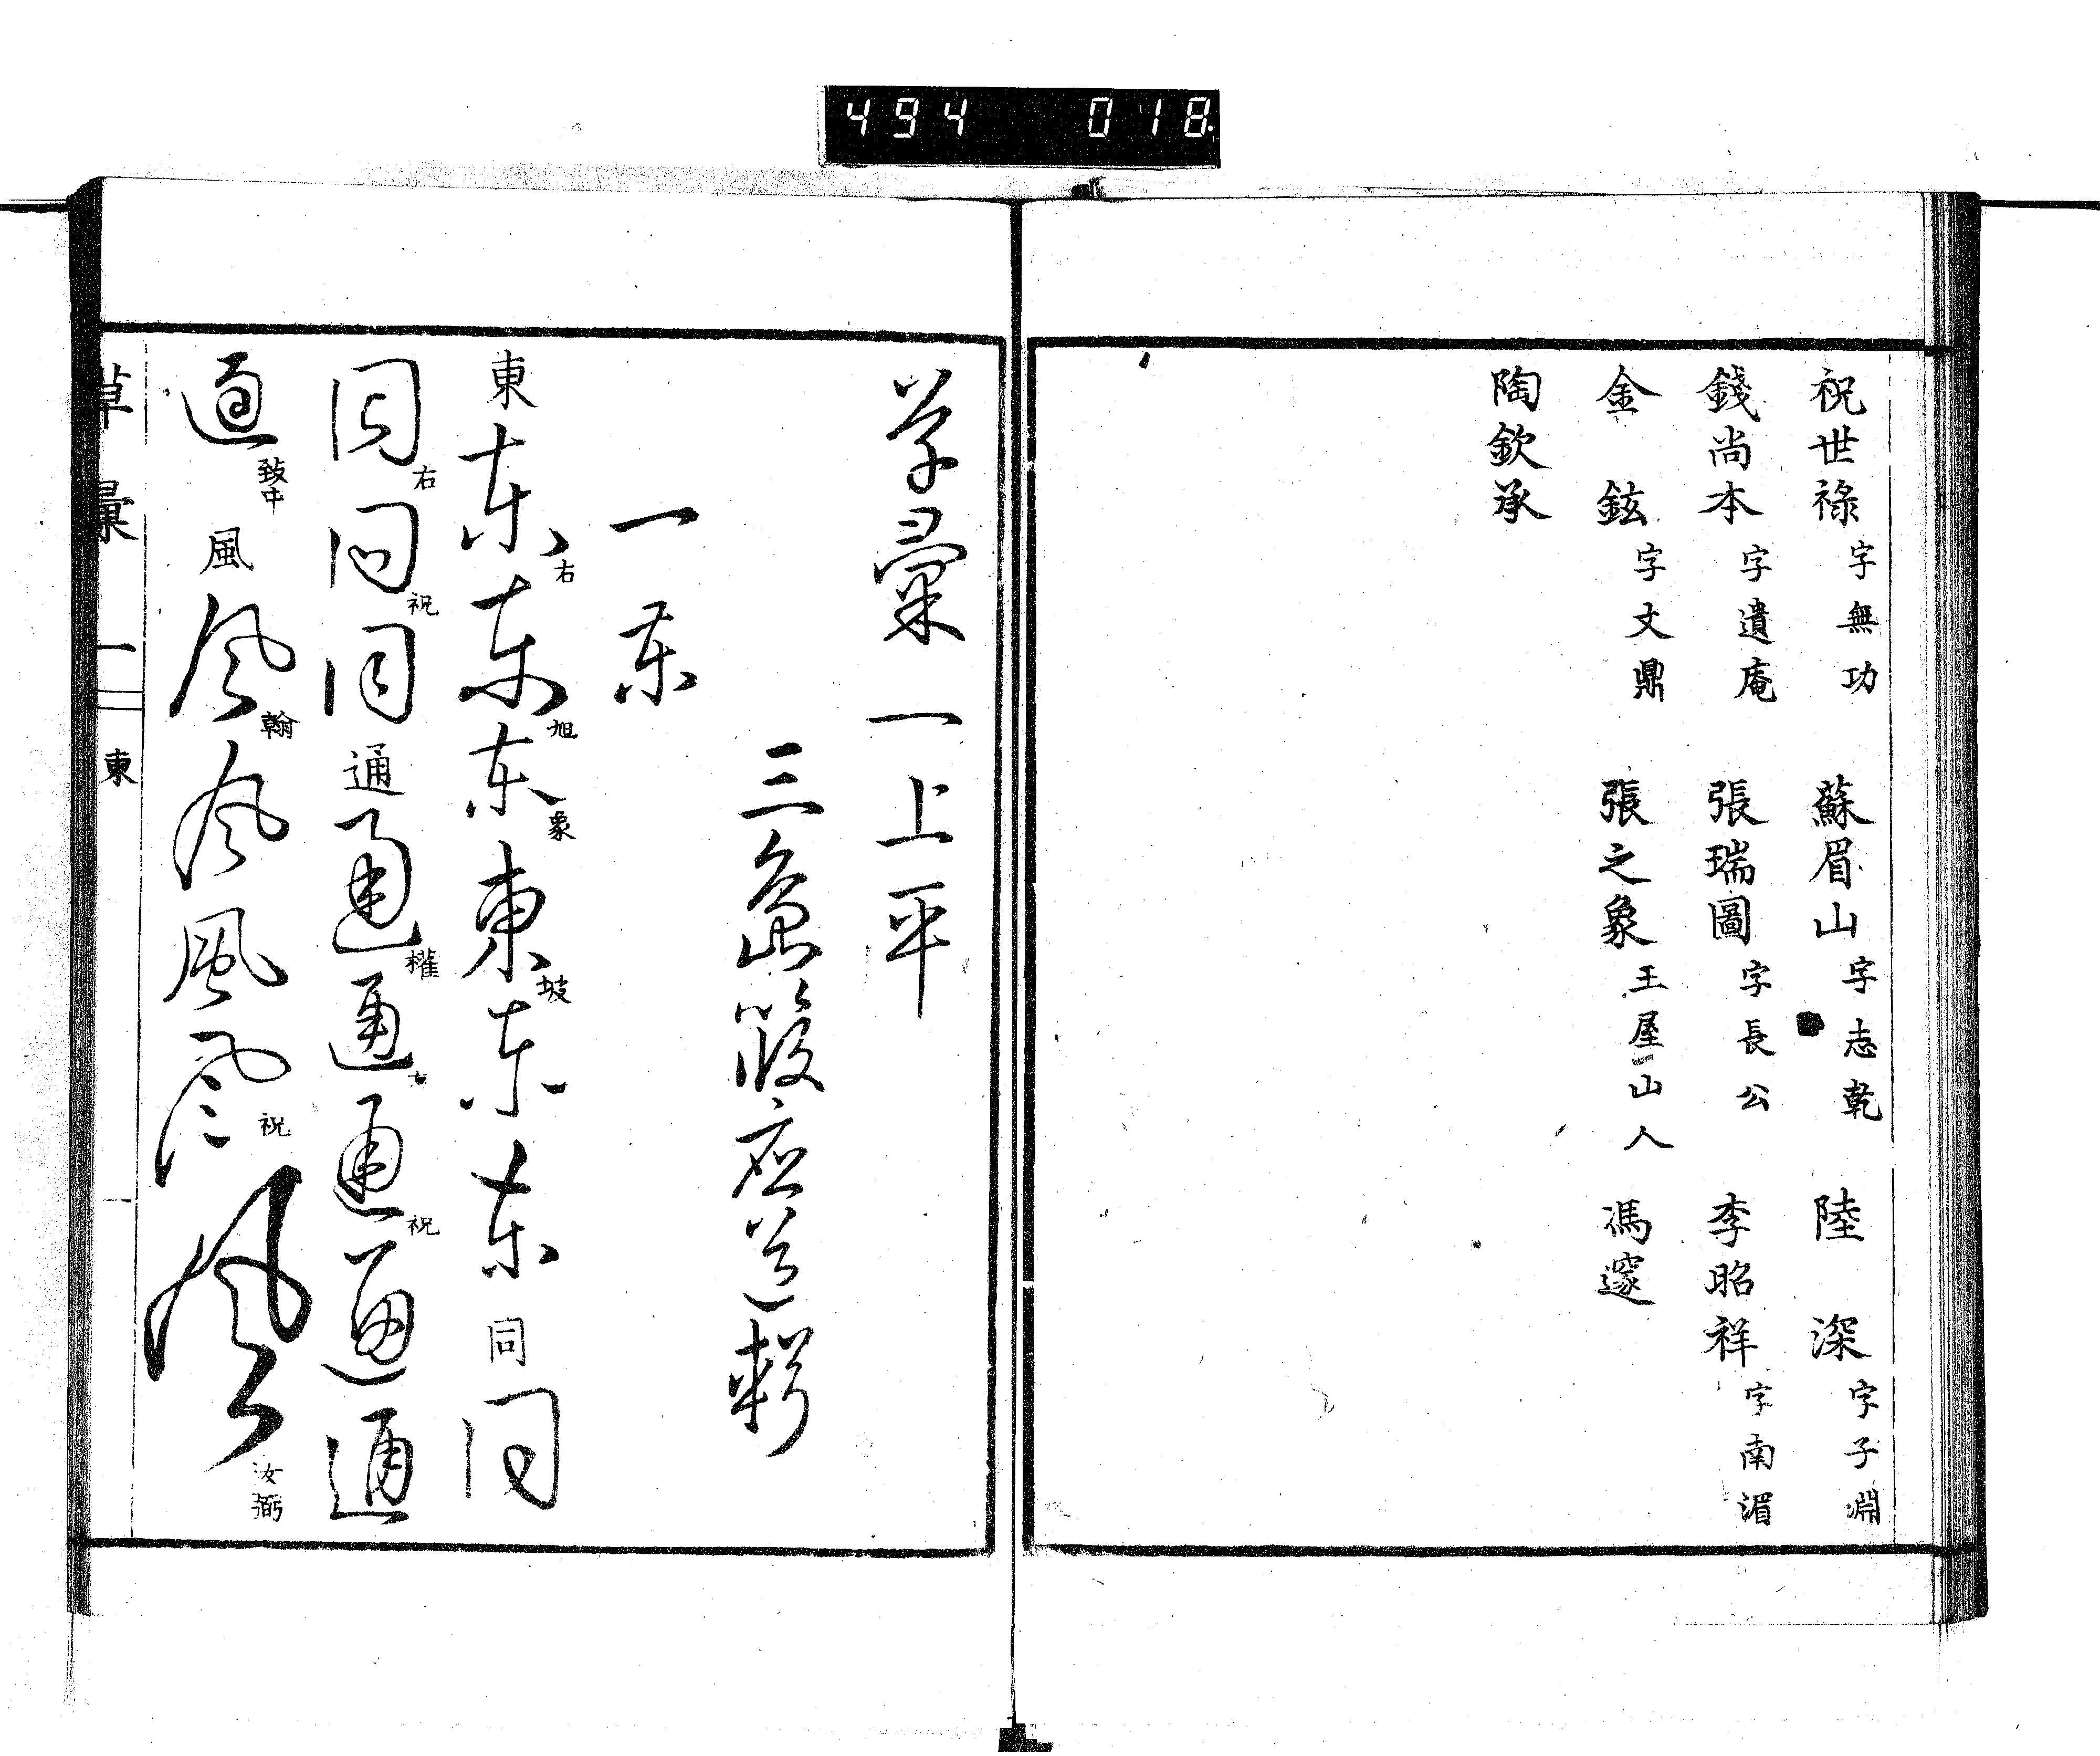 494 018
祝世祿 字無功 蘇眉山 字志乾 陸 深 字子淵
錢尚本 字遺庵 張瑞圖 字長公 李昭祥 字南湄
金 鉉 字文鼎 張之象 王屋山人 馮邃
陶欽承
草彙一上平
三 應道輯
一東
東 东 右 东 旭 东 象 東 坡 东 东 同 同
同 右 同 祝 同 通 通 權 通 通 祝 通 通
通 致中 風 風 翰 風 風 風 祝 風 汝弼
草彙 一 東 一